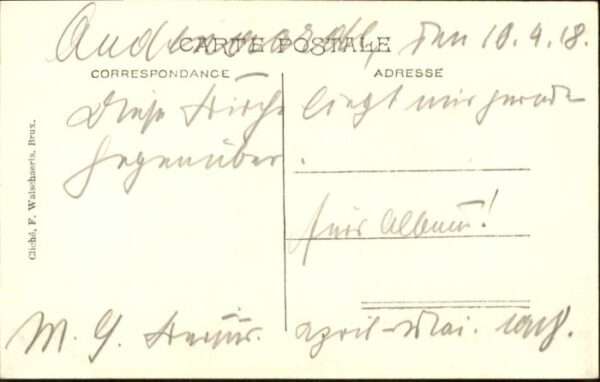 CARTE POSTALE, den 10.4.18.
CORRESPONDANCE
ADRESSE
Diese Kirche liegt mir gerade
gegenüber.
fürs Album!
M. G. April-Mai. 1918.
Cliché, F. Walschaerts, Brux.